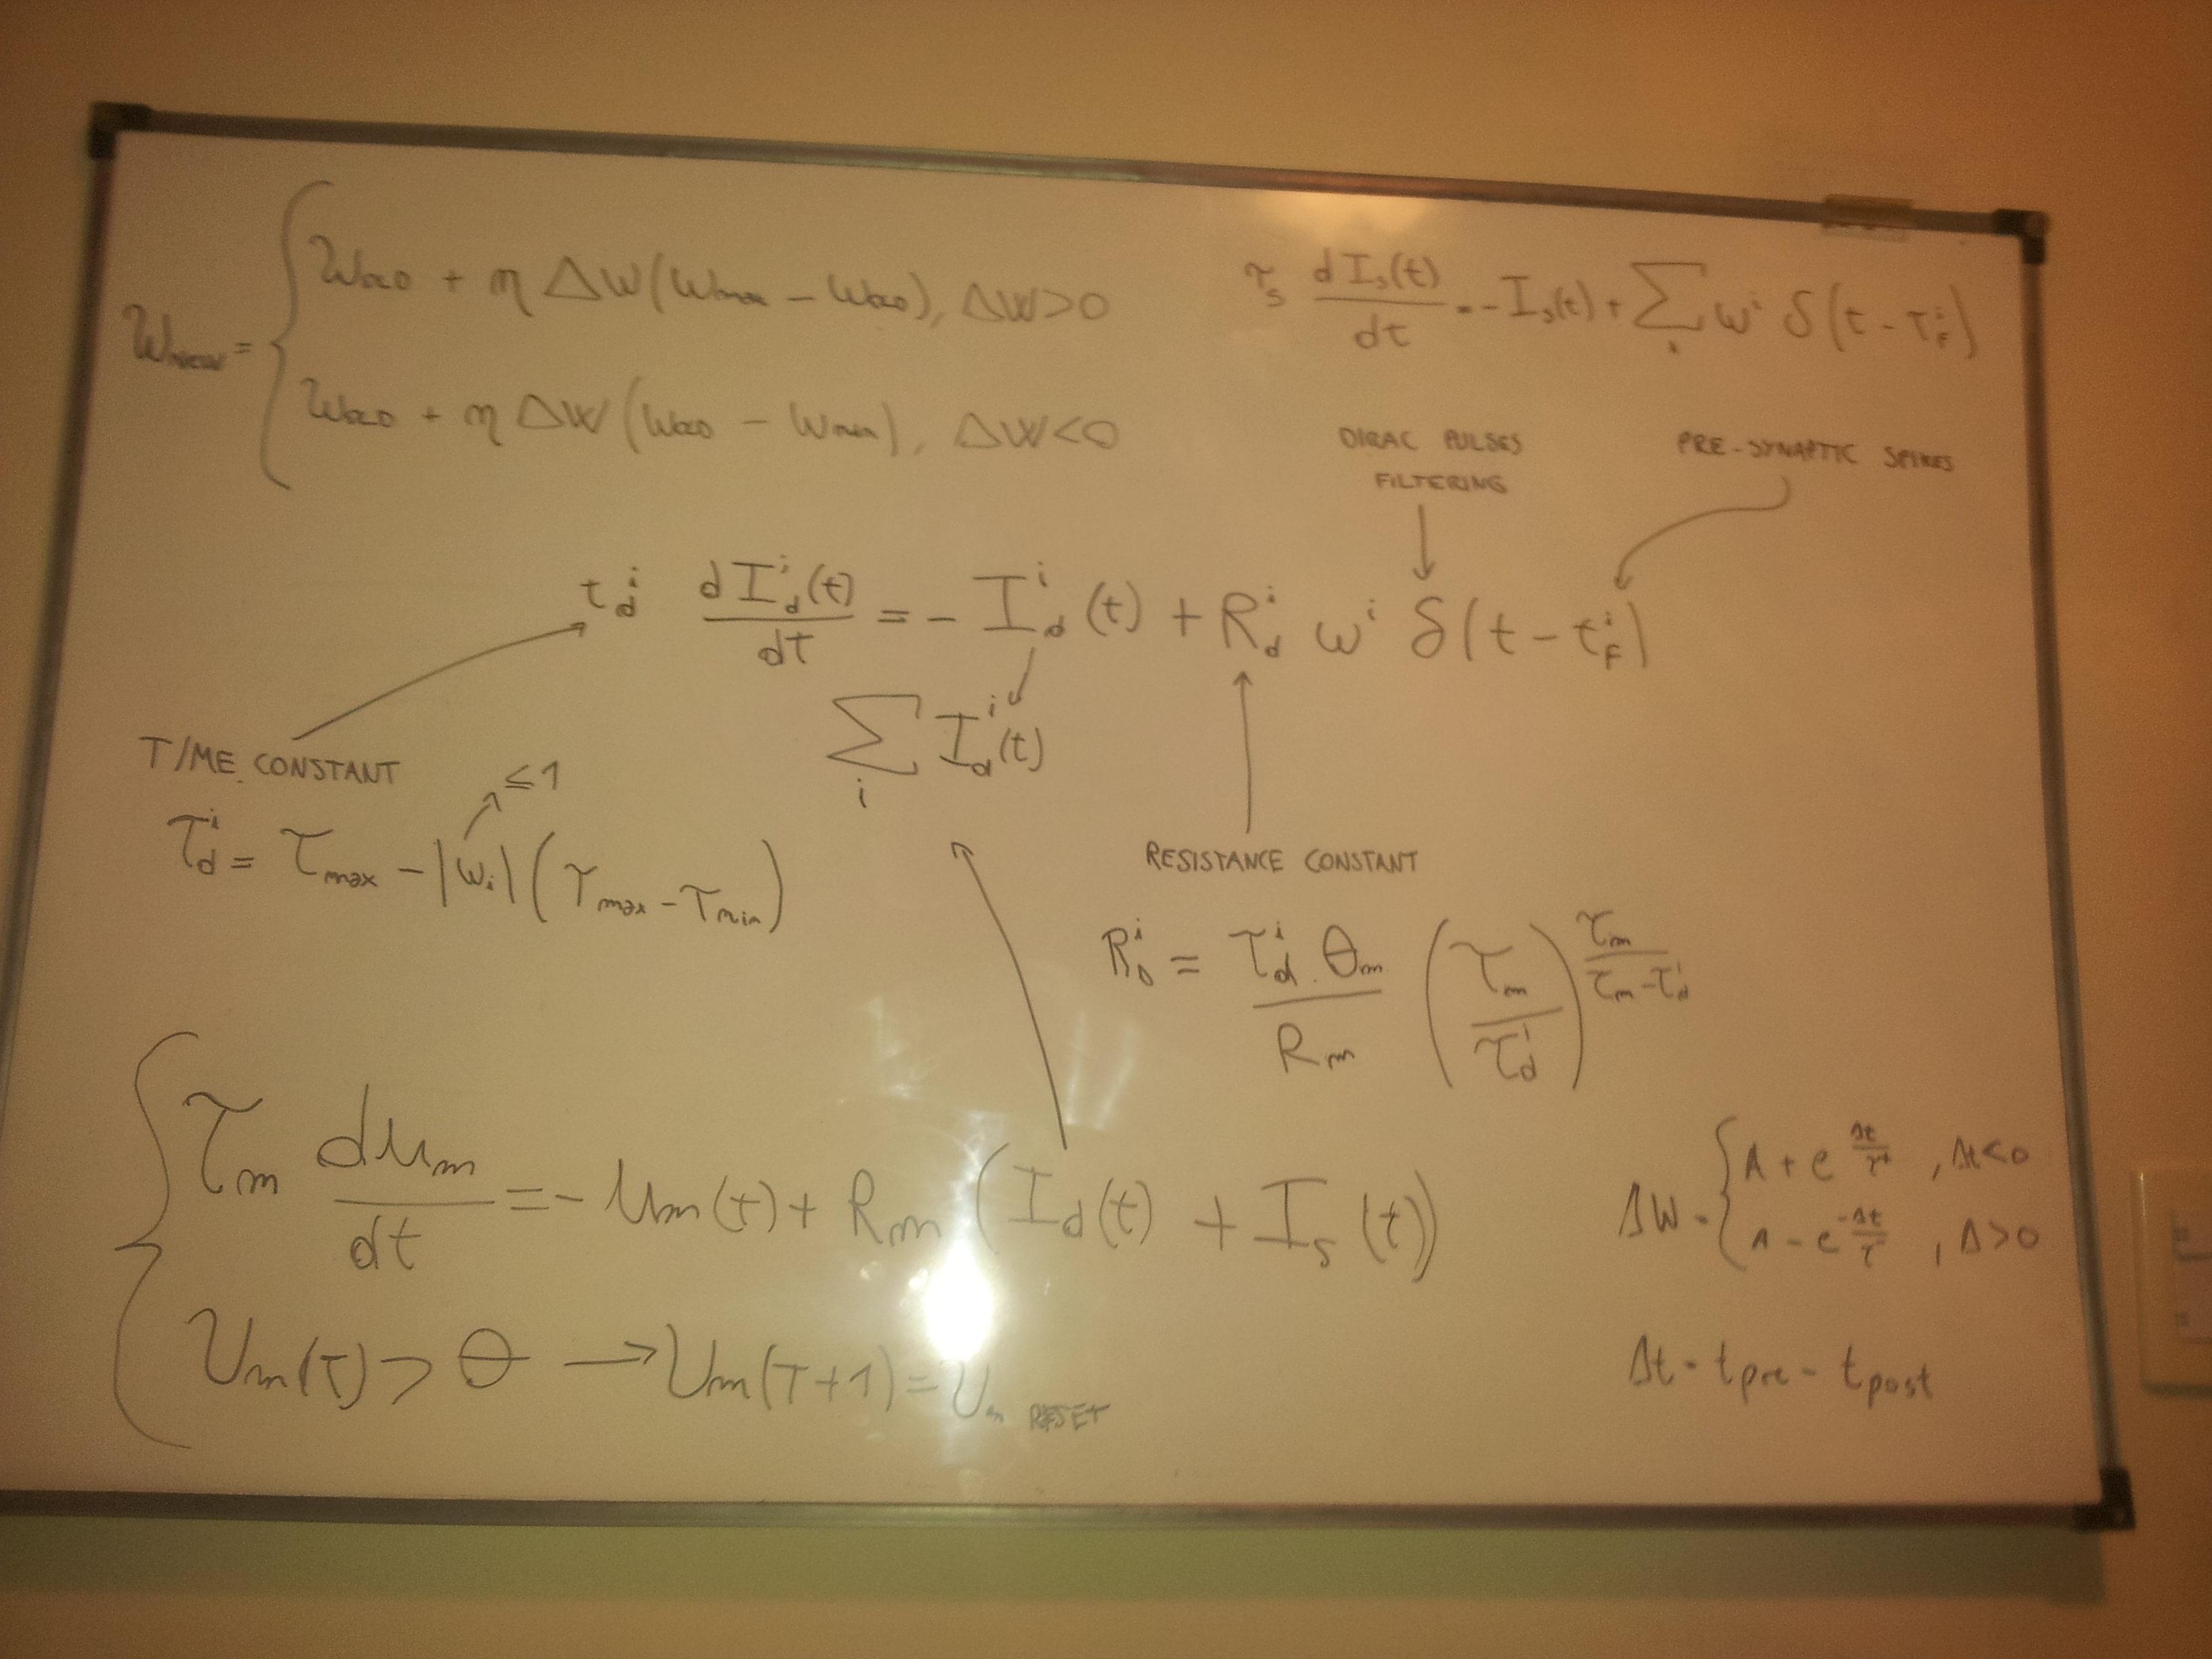 W_new = { W_old + η ΔW (W_max − W_old), ΔW>0
W_old + η ΔW (W_old − W_min), ΔW<0
τ_s dI_s(t)/dt = −I_s(t) + Σ_i w^i δ(t − τ_F^i)
DIRAC PULSES
FILTERING
PRE-SYNAPTIC SPIKES
t_d^i dI_d^i(t)/dt = − I_d^i(t) + R_d^i w^i δ(t − t_F^i)
Σ_i I_d^i(t)
TIME CONSTANT
≤1
τ_d^i = τ_max − |w_i| (τ_max − τ_min)
RESISTANCE CONSTANT
R_D^i = (τ_d^i · θ_m / R_m) (τ_m / τ_d^i)^(τ_m / (τ_m − τ_d^i))
{ τ_m du_m/dt = − u_m(t) + R_m (I_d(t) + I_s(t))
U_m(t) > θ → U_m(t+1) = U_m RESET
ΔW = { A + e^(Δt/τ+), Δt<0
A − e^(−Δt/τ−), Δ>0
Δt = t_pre − t_post